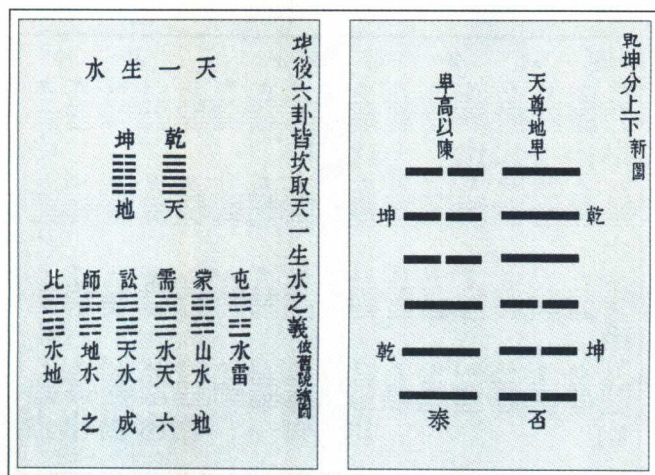 乾坤分上下新圖
天尊地卑
卑高以陳
乾
坤
否
坤
乾
泰
坤後六卦皆坎取天一生水之義
天一生水
乾天
坤地
屯水雷
蒙山水
需水天
訟天水
師地水
比水地
地六成之